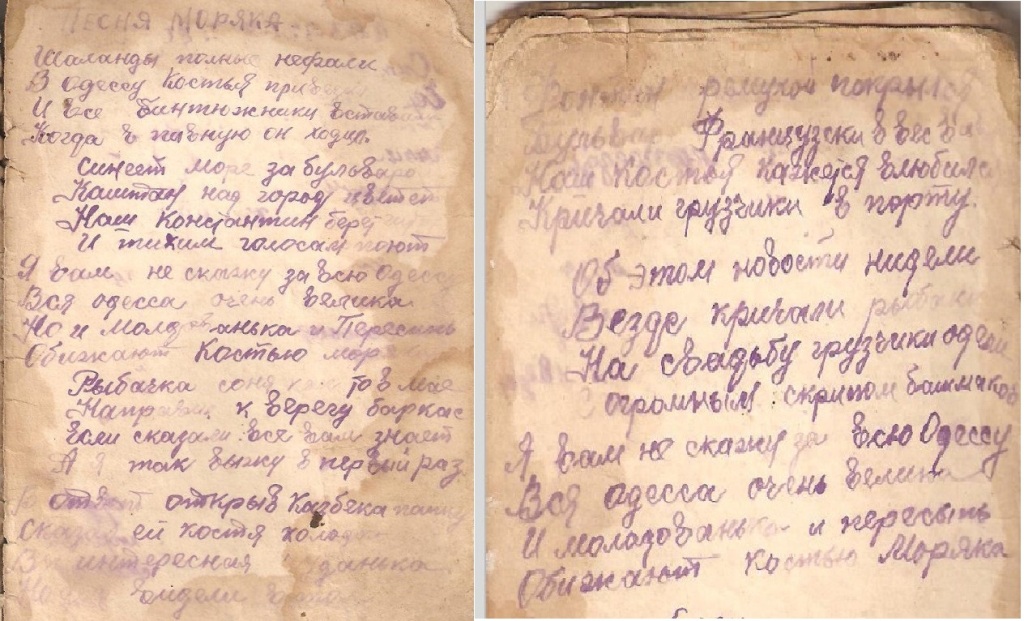 ПЕСНЯ МОРЯКА
Шаланды полные нефали
В Одессу Костья
И все бинтюжники встава
Когда в павную он ходил.
Синеет море за бульваро
Каштан над город цветет
Наш Константин берет
И тихим голосам поют
Я вам не скажу за всю Одессу
Вся одесса очень велика
Но и Молдованька и Пересыпь
Обижают Костью моря
Рыбачка соня как тов мае
Направив к берегу баркас
Если сказали все вам знает
А я так вижу в первый раз
В ответ открыв Казбека пачку
Сказал ей костя холодно
Вы интересная
видели
романом покрылся
Бульвар Французски в вес
Наш Костья кажется влюбился
Кричали грузчики в порту.
Об этом новости нидели
Везде кричали рыбаки
На свадьбу грузчики одели
огромным скрипом башмаков
Я вам не скажу за всю Одессу
Вся одесса очень велика
И молдованька и пересыпь
Обижают костью Моряка